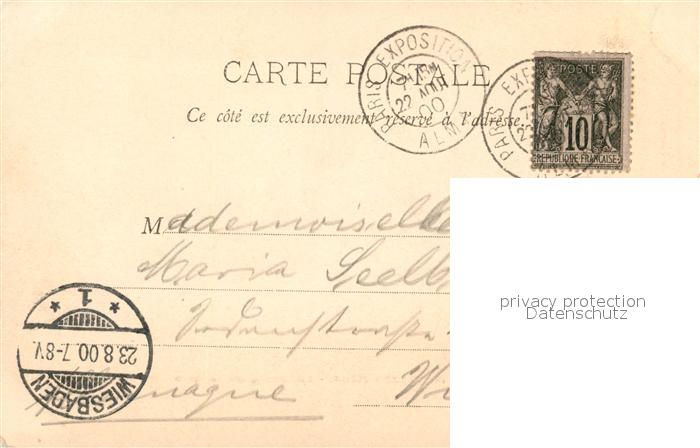 CARTE POSTALE
Ce côté est exclusivement réservé à l'adresse.
PARIS EXPOSITION
22 AOUT
00
ALM
PARIS EXPO
POSTE
10
REPUBLIQUE FRANÇAISE
Mademoiselle
Maria Seelb
Wi
Allemagne
privacy protection
Datenschutz
* 1 *
23.8.00.7-8V.
WIESBADEN